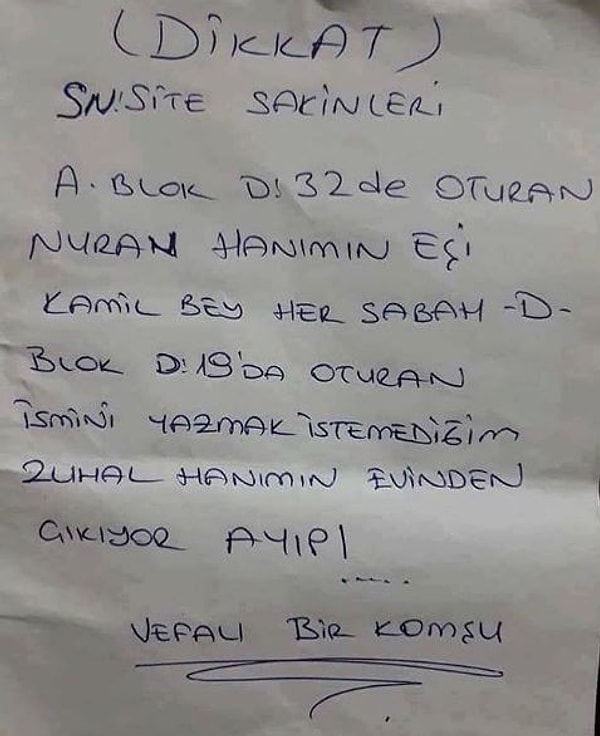 (DİKKAT)
SN: SİTE SAKİNLERİ
A. BLOK D:32de OTURAN
NURAN HANIMIN EŞİ
KAMİL BEY HER SABAH -D-
BLOK D:19'DA OTURAN
İSMİNİ YAZMAK İSTEMEDİĞİM
ZUHAL HANIMIN EVİNDEN
ÇIKIYOR AYIP!
......
VEFALI BİR KOMŞU